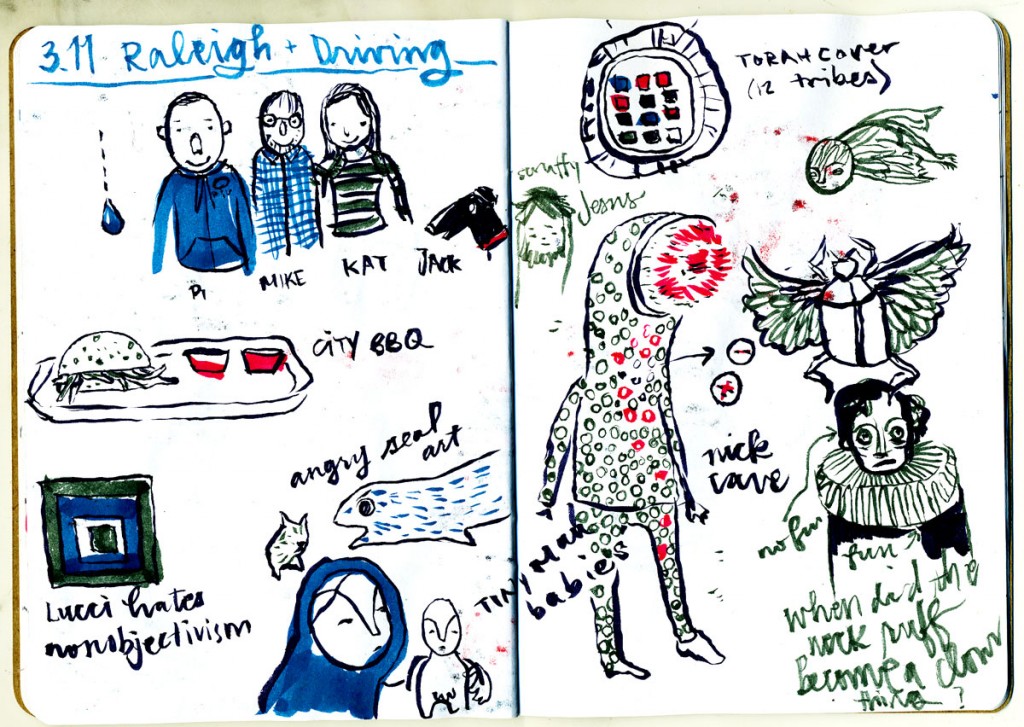 3.11 Raleigh + Driving
Pi
MIKE
KAT
JACK
CITY BBQ
angry seal
art
Lucci hates
nonobjectivism
TINY MAN
babies
TORAH cover
(12 tribes)
scruffy
Jesus
nick
cave
no fun
fun
when did the
neck ruff
become a clown
thing?